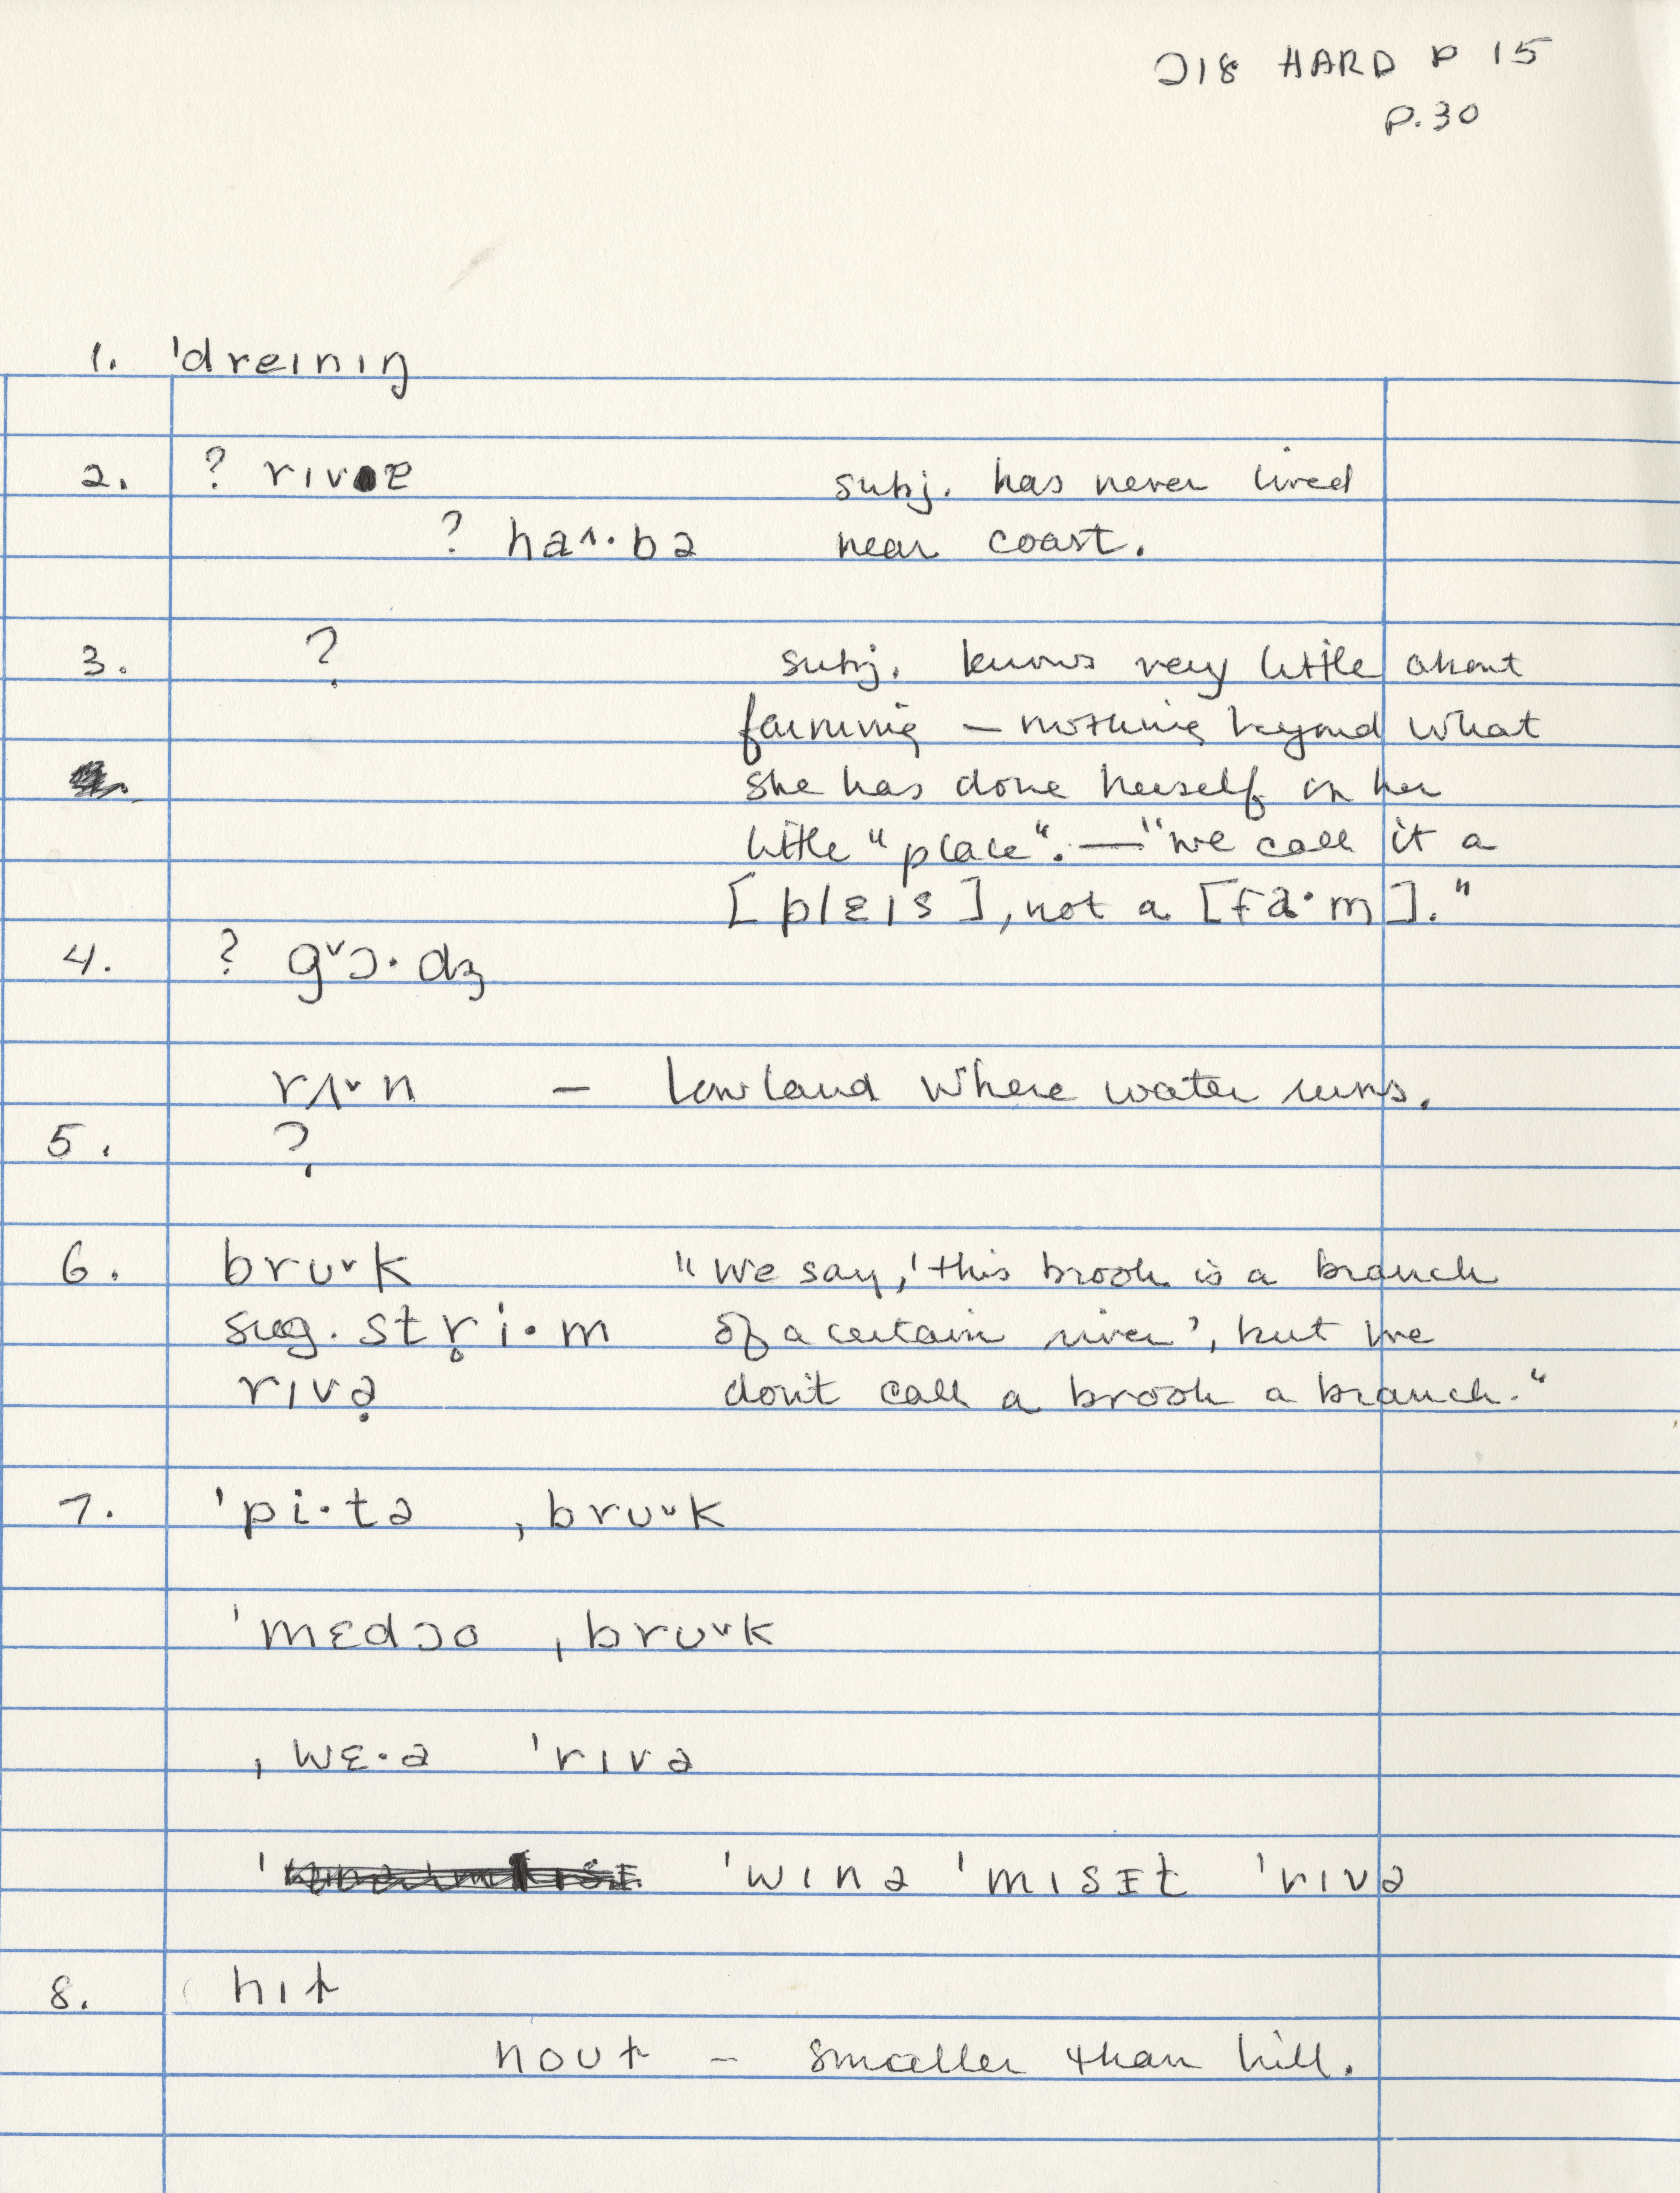 218 HARD P 15
P.30
1. ˈdreɪnɪŋ
2. ? rɪvɐ subj. has never lived
? ha˄·bə near coast.
3. ? subj. knows very little about
farming – nothing beyond what
she has done herself on her
little "place". — "we call it a
[plɛɪs], not a [fa·m]."
4. ? g˅ɔ·dʒ
rʌ˅n – lowland where water runs.
5. ?
6. brʊ˅k "we say, 'this brook is a branch
sug. str̥i·m of a certain river', but we
rɪvə̣ don't call a brook a branch."
7. ˈpi·tə ˌbrʊ˅k
ˈmɛdɔo ˌbrʊ˅k
ˌwɛ·ə ˈrɪvə
ˈwɪnə ˈmɪsɪt ˈrɪvə
8. hɪɫ
noʊɫ – smaller than hill.